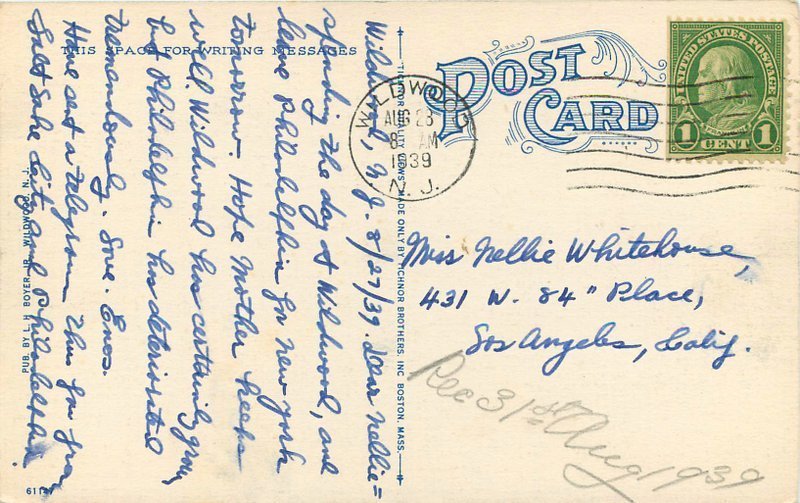 THIS SPACE FOR WRITING MESSAGES
POST
CARD
WILDWOOD
AUG 28
8 AM
1939
N. J.
UNITED STATES POSTAGE
FRANKLIN
1 CENT 1
Wildwood, N. J. 8/27/39. Dear Nellie =
spending the day at Wildwood, and
leave Philadelphia for New York
tomorrow. Hope Mother keeps
well. Wildwood has certainly grown
but Philadelphia has deteriorated
tremendously. Love. Enos.
Have sent a telegram thus far from
Salt Lake City and Philadelphia.
Miss Nellie Whitehouse,
431 W. 84" Place,
Los Angeles, Calif.
Rec 31st Aug 1939
MADE ONLY BY TICHNOR BROTHERS, INC. BOSTON, MASS.
PUB. BY L. H. BOYER, JR. WILDWOOD, N. J.